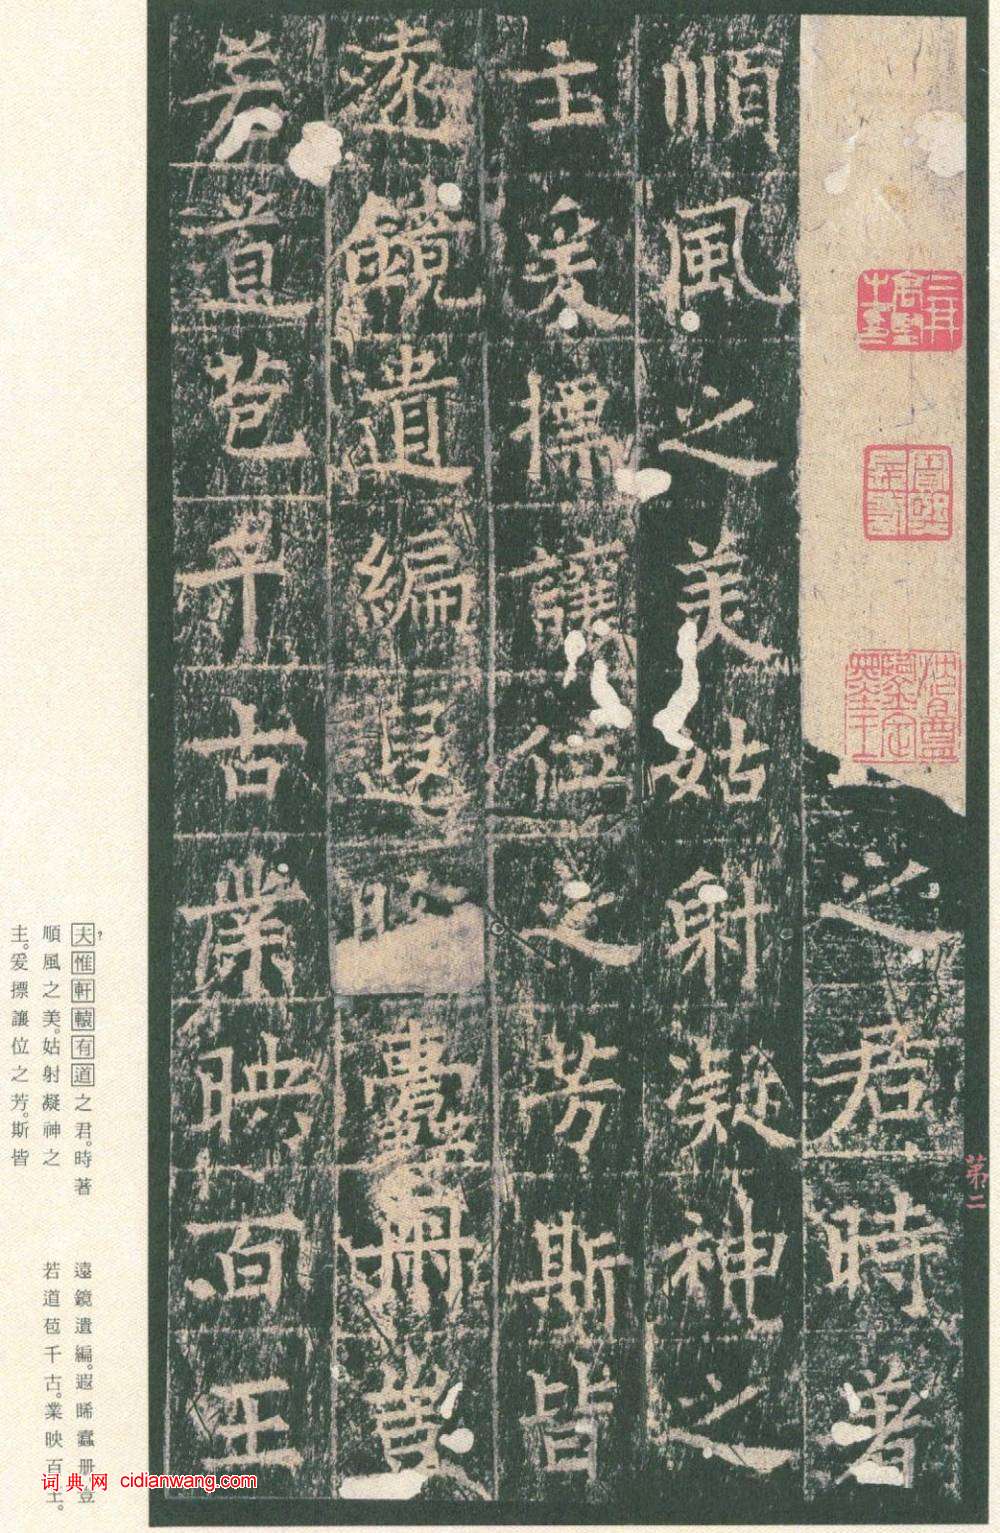 之君時著
順風之美姑射凝神之
主爰摽讓位之芳斯皆
遠鏡遺編遐睎蠹冊豈
若道苞千古業映百王
第二
夫惟軒轅有道之君。時著
順風之美。姑射凝神之
主。爰摽讓位之芳。斯皆
遠鏡遺編。遐睎蠹册。豈
若道苞千古。業映百王。
词典网 cidianwang.com